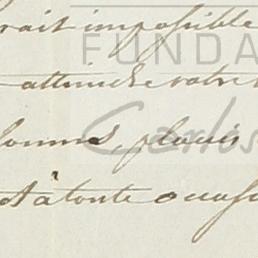 rait impossible
FUNDA
attendre votre
Carlos
sommes, placés
et à toute occas